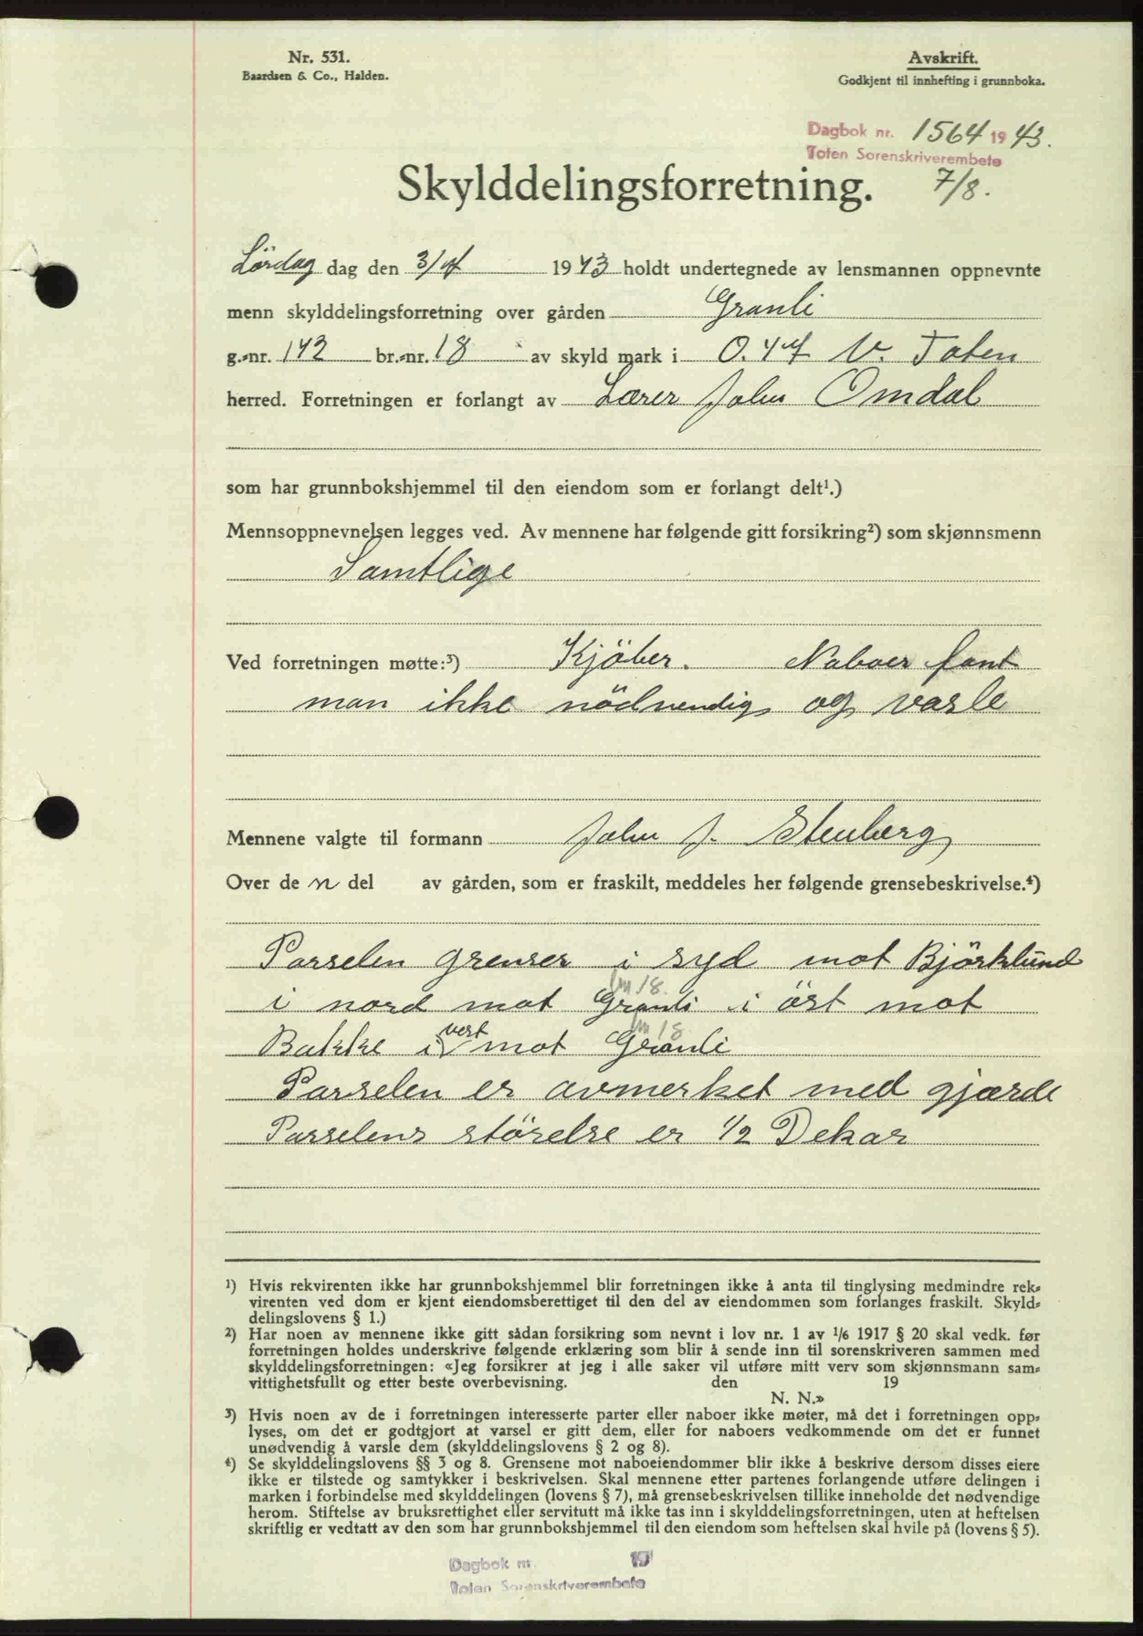 Nr. 531.
Baardsen & Co., Halden.
Avskrift.
Godkjent til innhefting i grunnboka.
Dagbok nr. 1564 1943.
Toten Sorenskriverembete
7/8.
Skylddelingsforretning.
Lördag dag den 3/7 1943 holdt undertegnede av lensmannen oppnevnte
menn skylddelingsforretning over gården Granli
g.-nr. 142 br.-nr. 18 av skyld mark i 0.47 V. Toten
herred. Forretningen er forlangt av Lærer John Omdal
som har grunnbokshjemmel til den eiendom som er forlangt delt¹.)
Mennsoppnevnelsen legges ved. Av mennene har følgende gitt forsikring²) som skjønnsmenn
Samtlige
Ved forretningen møtte:³) Kjöber. Naboer fant
man ikke nödvendig og varsle
Mennene valgte til formann John J. Stenberg
Over de n del av gården, som er fraskilt, meddeles her følgende grensebeskrivelse.⁴)
Parselen grenser i syd mot Björklund
i nord mot Granli i öst mot
Bakke i vest mot Granli
Parselen er avmerket med gjærde
Parselens störelse er 1/2 Dekar
¹) Hvis rekvirenten ikke har grunnbokshjemmel blir forretningen ikke å anta til tinglysing medmindre rek-
virenten ved dom er kjent eiendomsberettiget til den del av eiendommen som forlanges fraskilt. Skyld-
delingslovens § 1.)
²) Har noen av mennene ikke gitt sådan forsikring som nevnt i lov nr. 1 av 1/6 1917 § 20 skal vedk. før
forretningen holdes underskrive følgende erklæring som blir å sende inn til sorenskriveren sammen med
skylddelingsforretningen: «Jeg forsikrer at jeg i alle saker vil utføre mitt verv som skjønnsmann sam-
vittighetsfullt og etter beste overbevisning. den 19
N. N.»
³) Hvis noen av de i forretningen interesserte parter eller naboer ikke møter, må det i forretningen opp-
lyses, om det er godtgjort at varsel er gitt dem, eller for naboers vedkommende om det er funnet
unødvendig å varsle dem (skylddelingslovens § 2 og 8).
⁴) Se skylddelingslovens §§ 3 og 8. Grensene mot naboeiendommer blir ikke å beskrive dersom disses eiere
ikke er tilstede og samtykker i beskrivelsen. Skal mennene etter partenes forlangende utføre delingen i
marken i forbindelse med skylddelingen (lovens § 7), må grensebeskrivelsen tillike inneholde det nødvendige
herom. Stiftelse av bruksrettighet eller servitutt må ikke tas inn i skylddelingsforretningen, uten at heftelsen
skriftlig er vedtatt av den som har grunnbokshjemmel til den eiendom som heftelsen skal hvile på (lovens § 5).
Dagbok nr. 19
Toten Sorenskriverembete